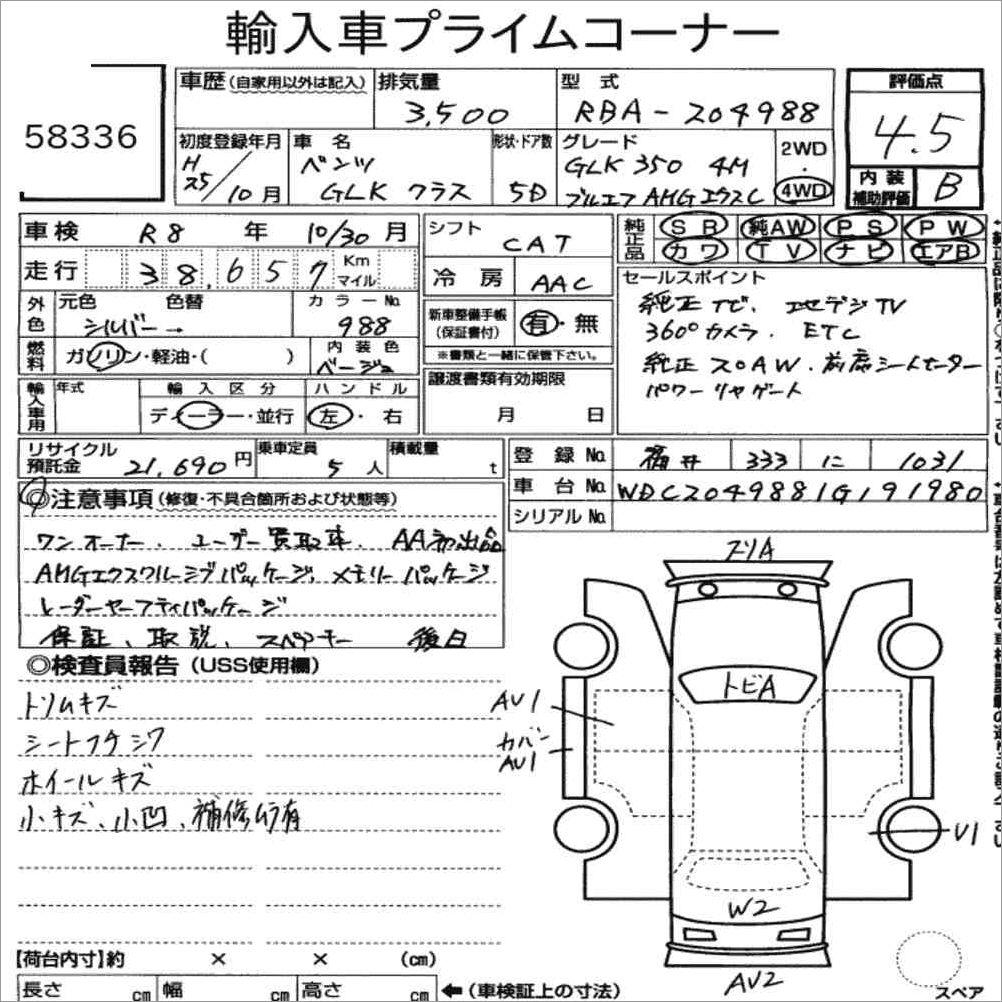 輸入車プライムコーナー
58336
車歴(自家用以外は記入) 排気量 3,500
型式 RBA-204988
評価点 4.5
内装補助評価 B
初度登録年月 H25/10月
車名 ベンツ GLKクラス
形状・ドア数 5D
グレード GLK350 4M
ブルエフ AMGエクスC
2WD
4WD
車検 R8年 10/30月
走行 38,657 Km マイル
外色 元色 シルバー→ 色替 カラーNo. 988
燃料 ガソリン・軽油・( ) 内装色 ベージュ
輸入車用 年式 輸入区分 ディーラー・並行 ハンドル 左・右
シフト CAT
冷房 AAC
新車整備手帳(保証書付) 有・無
※書類と一緒に保管下さい。
譲渡書類有効期限 月 日
純正品 SR 純AW PS PW
カワ TV ナビ エアB
セールスポイント
純正ナビ、地デジTV
360°カメラ. ETC
純正20AW.前席シートヒーター
パワーリヤゲート
リサイクル預託金 21,690円 乗車定員 5人 積載量 t
登録No. 福井 333 に 1031
車台No. WDC2049881G191980
シリアルNo.
◎注意事項(修復・不具合箇所および状態等)
ワンオーナー、ユーザー買取車、AA初出品
AMGエクスクルーシブパッケージ、メモリーパッケージ
レーダーセーフティパッケージ
保証、取説、スペアキー 後日
◎検査員報告(USS使用欄)
トリムキズ
シートフチシワ
ホイールキズ
小キズ、小凹、補修ムラ有
スリA
トビA
AV1
カバーAV1
V1
W2
AV2
【荷台内寸】約 × × (cm)
長さ cm 幅 cm 高さ cm ←(車検証上の寸法)
スペア